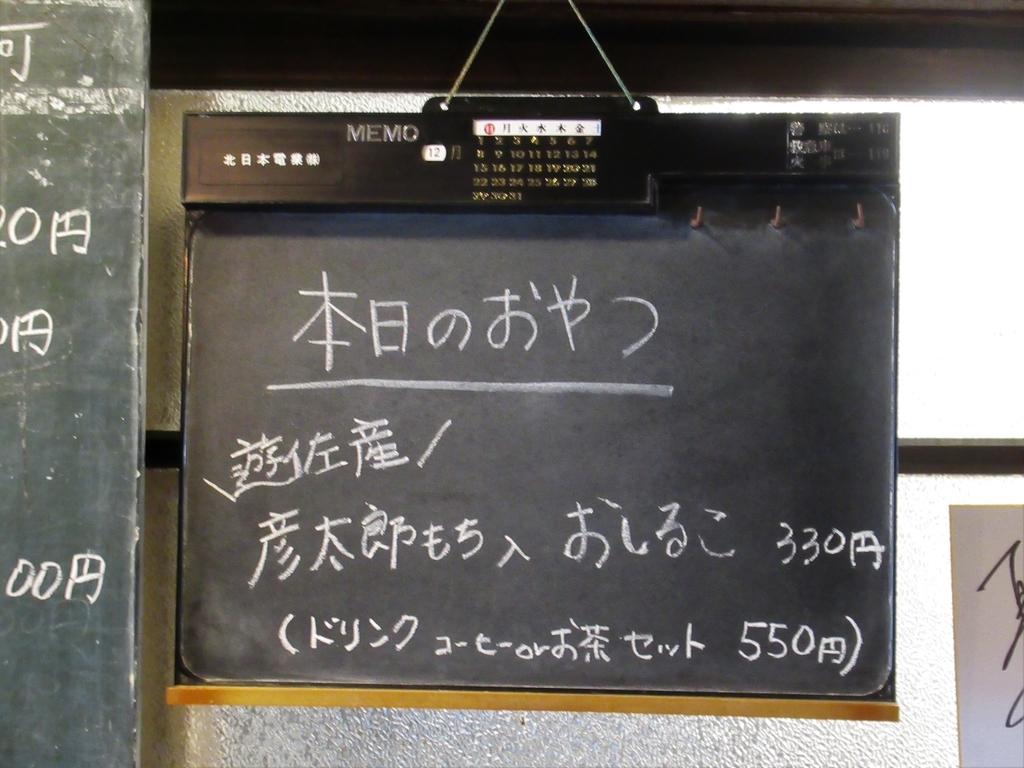 可
20円
0円
00円
MEMO
北日本電業㈱
12月
日 月 火 水 木 金 土
1 2 3 4 5 6 7
8 9 10 11 12 13 14
15 16 17 18 19 20 21
22 23 24 25 26 27 28
29 30 31
本日のおやつ
遊佐産
彦太郎もち入 おしるこ 330円
(ドリンク コーヒーorお茶 セット 550円)